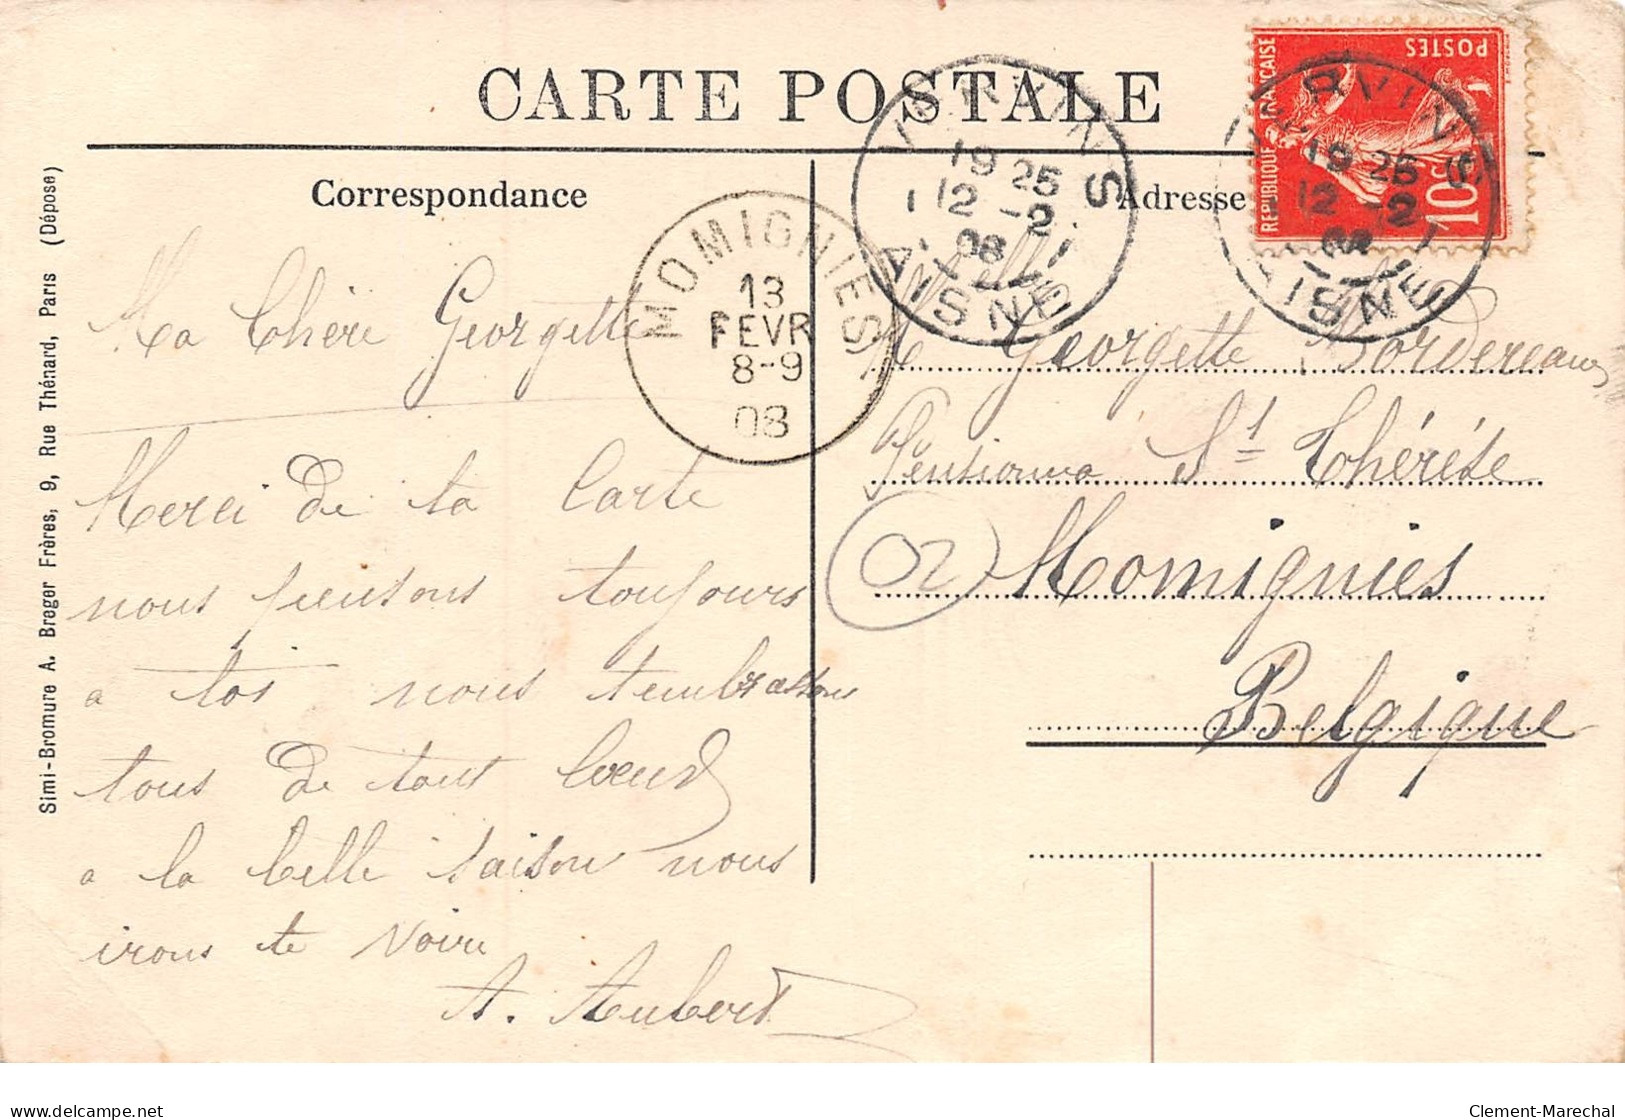 CARTE POSTALE
Correspondance
Adresse
Simi-Bromure A. Breger Frères, 9, Rue Thénard, Paris (Déposé)
REPUBLIQUE FRANÇAISE
POSTES
10c
VERVINS
19 25
12 -2
08
AISNE
VERVINS
19 25
12 -2
08
AISNE
MOMIGNIES
13
FEVR
8-9
08
Ma Chère Georgette
Merci de ta Carte
nous pensons toujours
a toi nous t'embrassons
tous de tout Coeur
a la belle saison nous
irons te Voire
A. Aubert
Melle
Georgette Bordereaux
Pensionna St Thérése
Momignies
Belgique
02
delcampe.net
Clement-Marechal